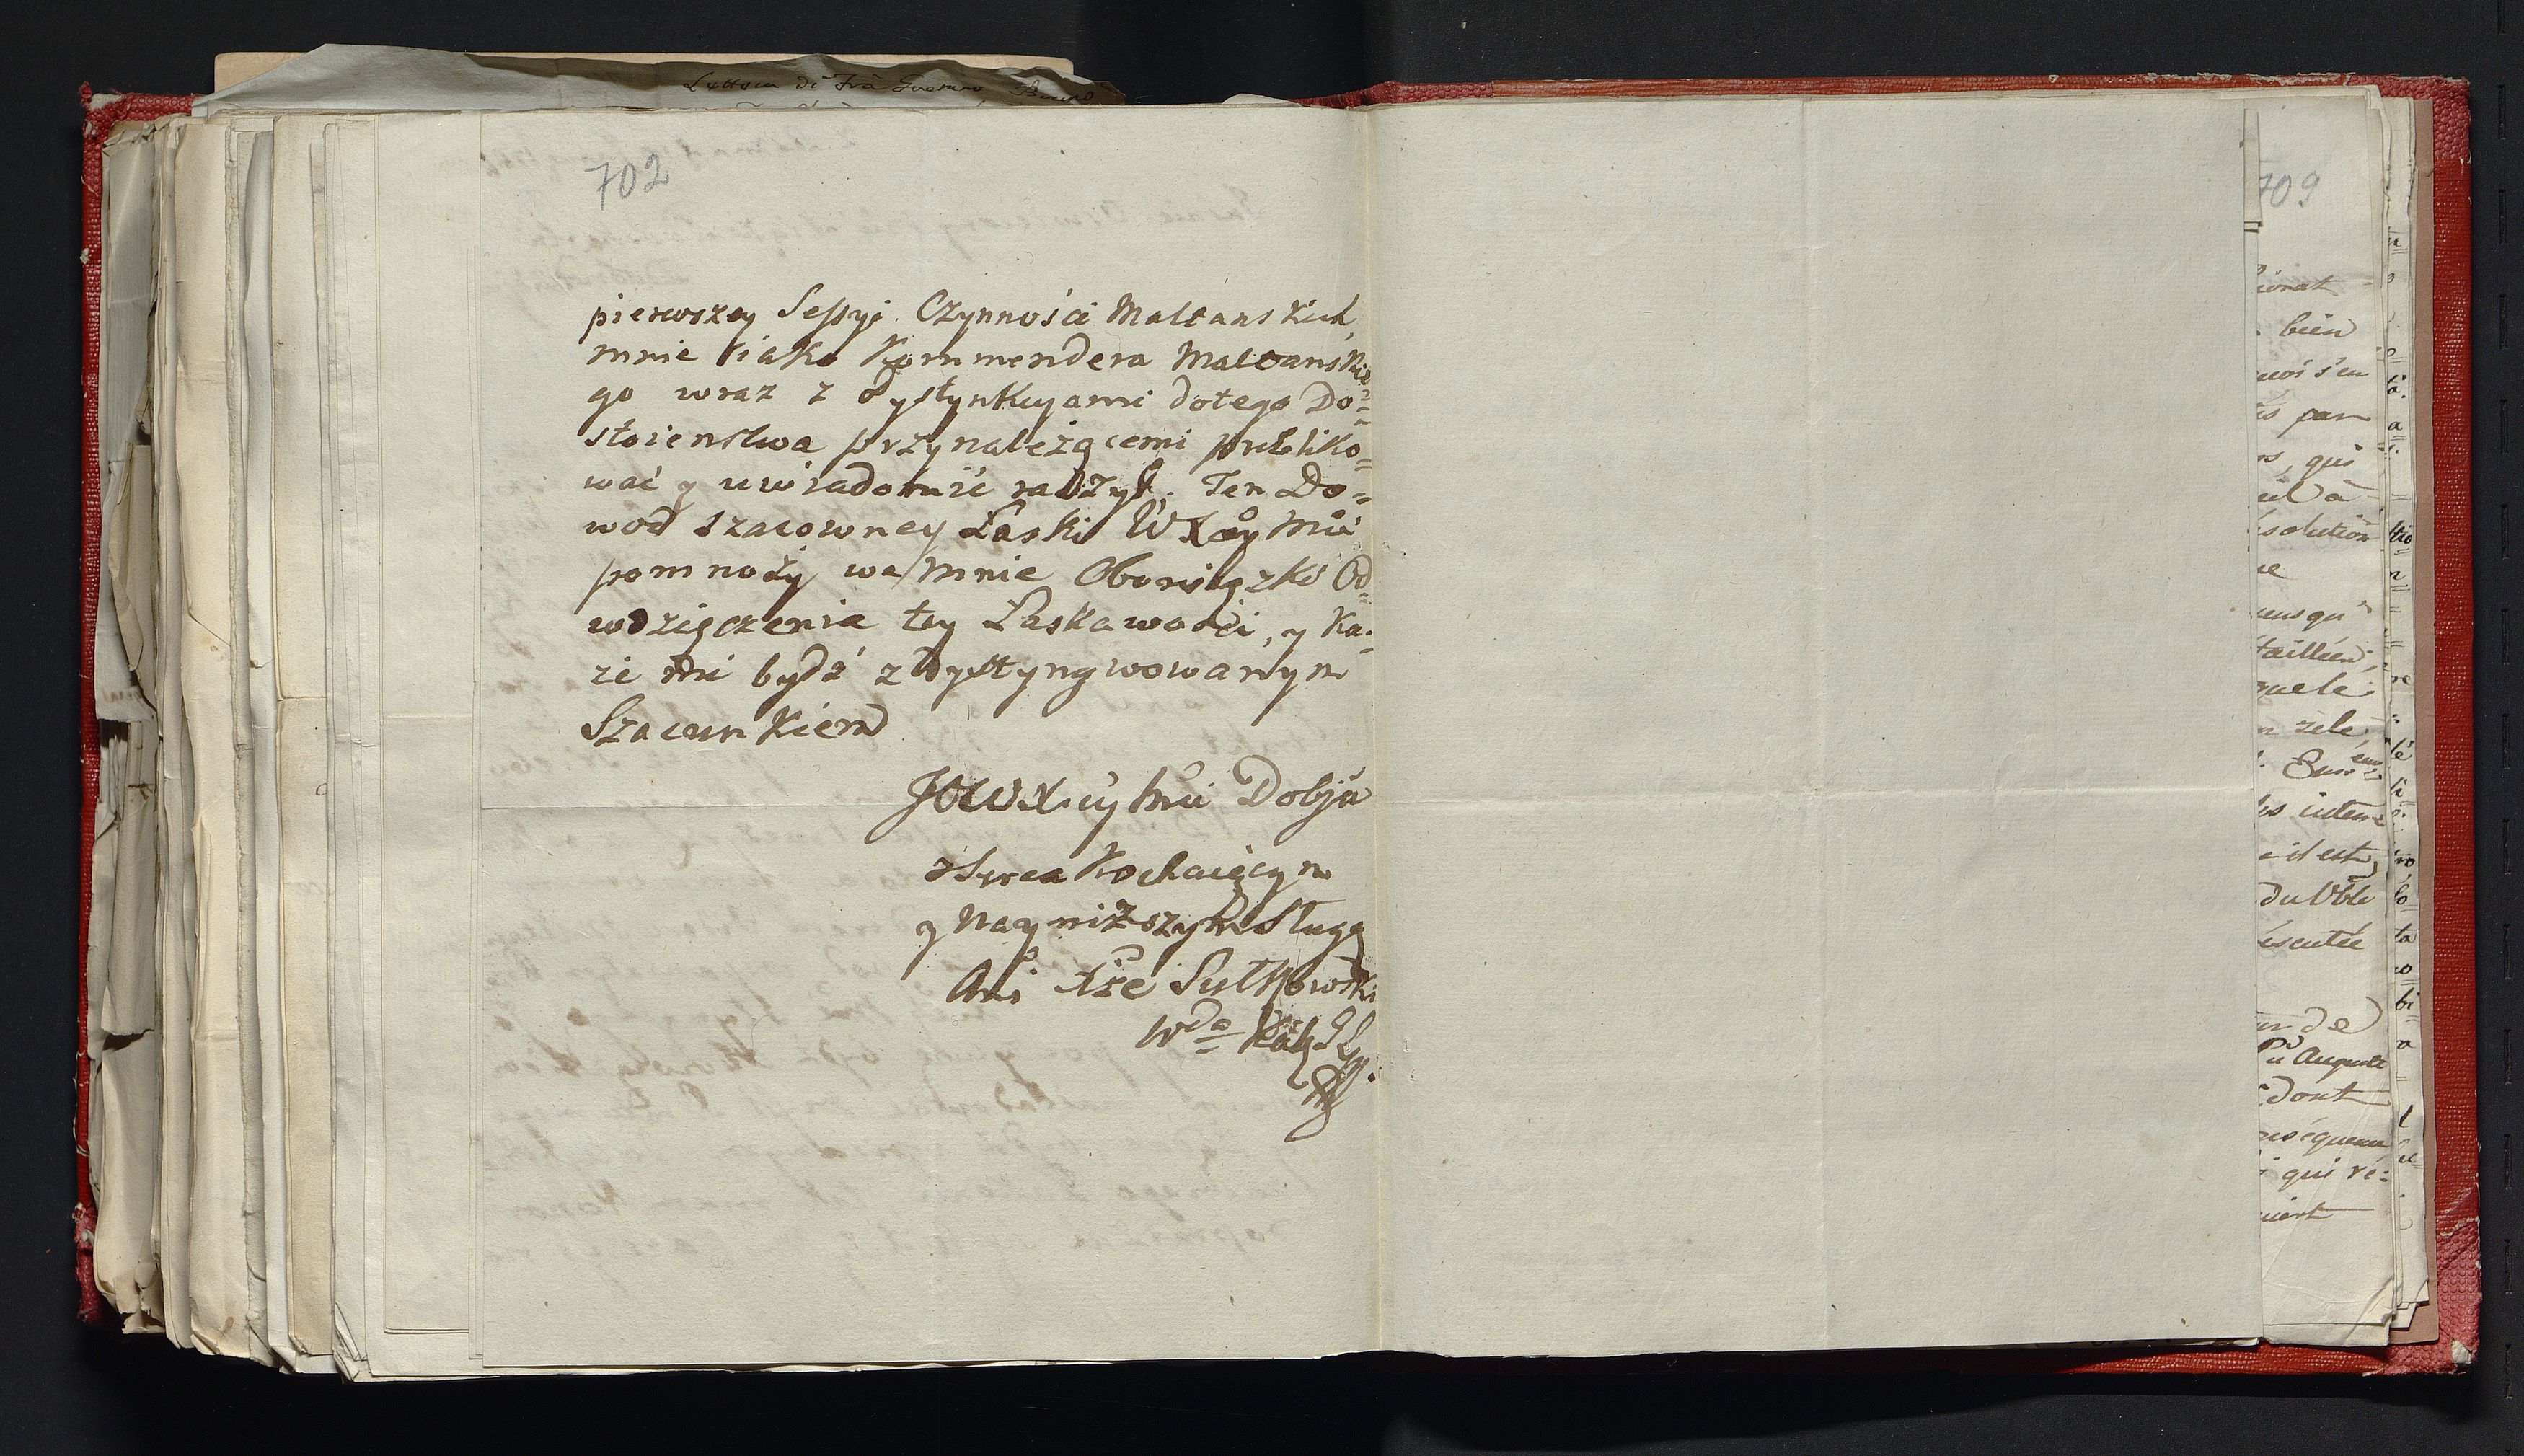 Lettera di Frà
702
pierwszey Sessyi Czynności Maltanskich
mnie iako Kommendera Maltanskie
go wraz z dystynkcyami dotego Do=
stoienstwa przynależącemi publiko=
wać y uwiadomić raczył. Ten Do=
wod szacowney Łaski
pomnoży we mnie Obowiązki Od=
wdzięczenia tey Łaskawości, y Ka=
że mi bydź z dystyngwowanym
Szacunkiem
JOWX cy Mci Dobja
z Serca Kochaiącym
y Nayniższym Sługą
Xże Sułkowski
Wda
709
bien
s'en
par
qui
à
solution
zele
inten
il est
du
de
Auguste
dont
qui ré=